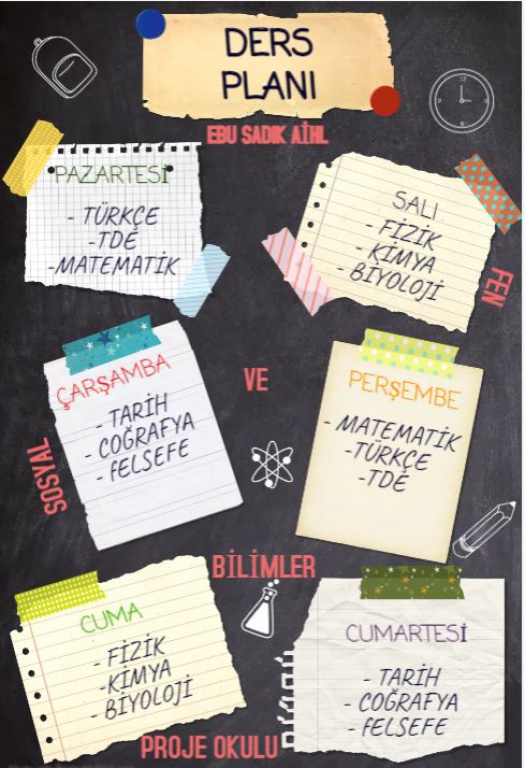 DERS
PLANI
EBU SADIK AİHL
PAZARTESİ
- TÜRKÇE
-TDE
-MATEMATİK
SALI
- FİZİK
- KİMYA
- BİYOLOJİ
FEN
VE
ÇARŞAMBA
- TARİH
- COĞRAFYA
- FELSEFE
SOSYAL
PERŞEMBE
- MATEMATİK
-TÜRKÇE
-TDE
BİLİMLER
CUMA
- FİZİK
-KİMYA
- BİYOLOJİ
CUMARTESİ
- TARİH
- COĞRAFYA
- FELSEFE
PROJE OKULU